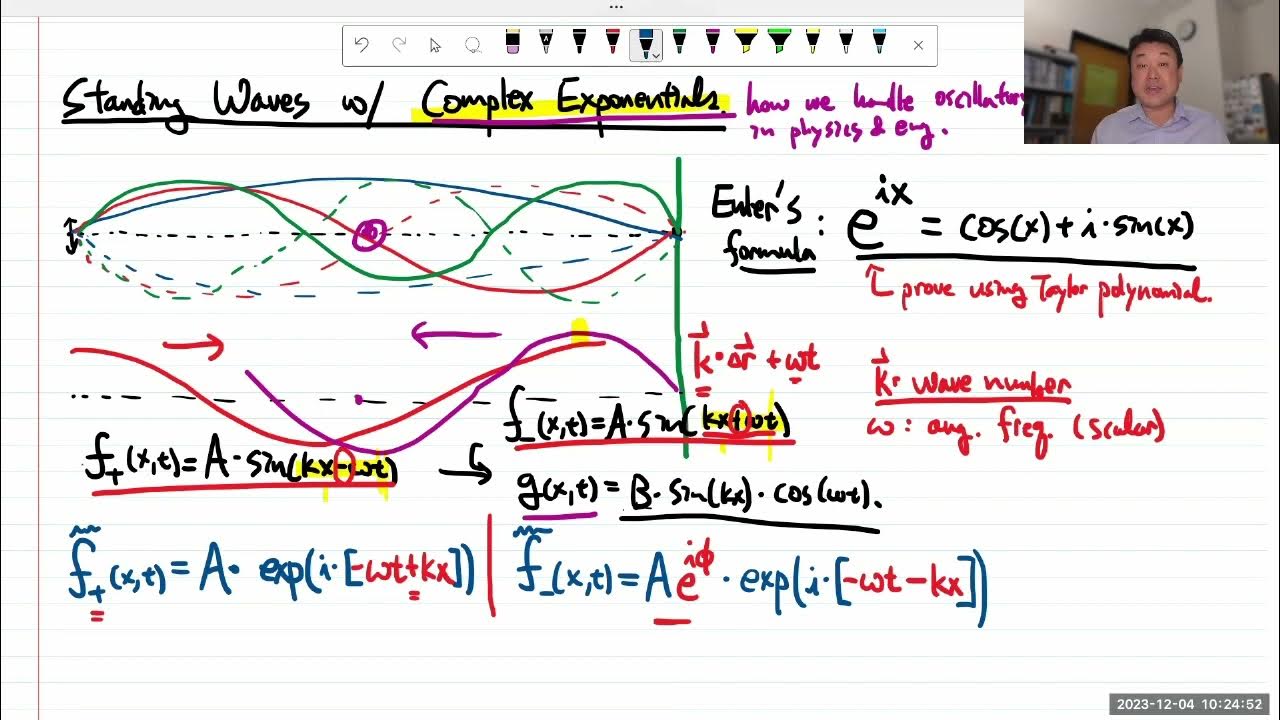 Standing Waves w/ Complex Exponentials.
how we handle oscillatory
in physics & eng.
Euler's formula: e^{ix} = cos(x) + i·sin(x)
prove using Taylor polynomial.
k⃗·Δr⃗ + ωt
k⃗: wave number
ω: ang. freq. (scalar)
f₋(x,t) = A·sin(kx+ωt)
f₊(x,t) = A·sin(kx-ωt)
g(x,t) = B·sin(kx)·cos(ωt).
f̃₊(x,t) = A· exp(i·[-ωt+kx])
f̃₋(x,t) = A e^{iϕ}·exp(i·[-ωt-kx])
2023-12-04 10:24:52